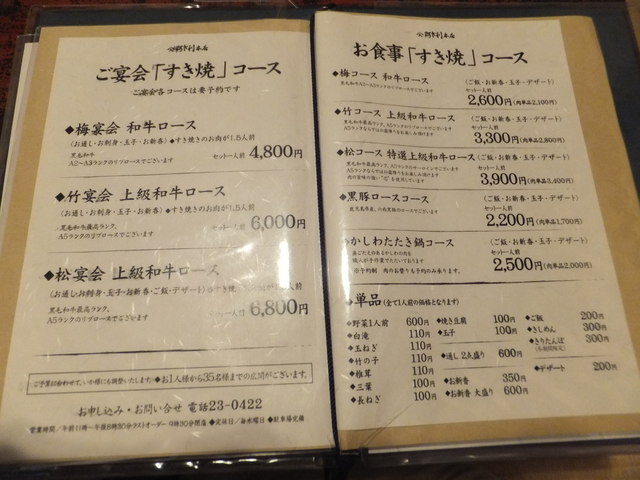 ご宴会「すき焼」コース
ご宴会各コースは要予約です
◆梅宴会 和牛ロース
(お通し・お刺身・玉子・お新香)◆すき焼きのお肉が1.5人前
黒毛和牛
A2〜A3ランクのリブロースでございます
セット一人前 4,800円
◆竹宴会 上級和牛ロース
(お通し・お刺身・玉子・お新香)◆すき焼きのお肉が1.5人前
黒毛和牛最高ランク、
A5ランクのリブロースでございます
セット一人前 6,000円
◆松宴会 上級和牛ロース
(お通し・お刺身・玉子・お新香・ご飯・デザート)◆すき焼
黒毛和牛最高ランク、
A5ランクのリブロースでございます
セット一人前 6,800円
ご予算に合わせて、いか様にも調整いたします。◆お1人様から35名様までの広間がございます。
お申し込み・お問い合せ 電話23-0422
営業時間/午前11時〜午後8時30分ラストオーダー 9時30分閉店◆定休日/毎水曜日◆駐車場完備
お食事「すき焼」コース
◆梅コース 和牛ロース
(ご飯・お新香・玉子・デザート)
セット一人前
2,600円(肉単品2,100円)
◆竹コース 上級和牛ロース
(ご飯・お新香・玉子・デザート)
黒毛和牛最高ランク、A5ランクのリブロースでございます
セット一人前
3,300円(肉単品2,800円)
◆松コース 特選上級和牛ロース
(ご飯・お新香・玉子・デザート)
セット一人前
3,900円(肉単品3,400円)
◆黒豚ロースコース
(ご飯・お新香・玉子・デザート)
鹿児島県産、の肉黒豚のロースでございます
セット一人前
2,200円(肉単品1,700円)
◆かしわたたき鍋コース
(ご飯・お新香・玉子・デザート)
セット一人前
2,500円(肉単品2,000円)
◆単品 (全て1人前の価格となります)
◆野菜1人前 600円 ◆焼き豆腐 100円 ◆ご飯 200円
◆白滝 110円 ◆玉子 100円 ◆きしめん 300円
◆玉ねぎ 110円 ◆きりたんぽ 300円
◆竹の子 110円 ◆通し2点盛り 600円
◆椎茸 110円 ◆デザート 200円
◆三葉 100円 ◆お新香 350円
◆長ねぎ 100円 ◆お新香 大盛り 600円